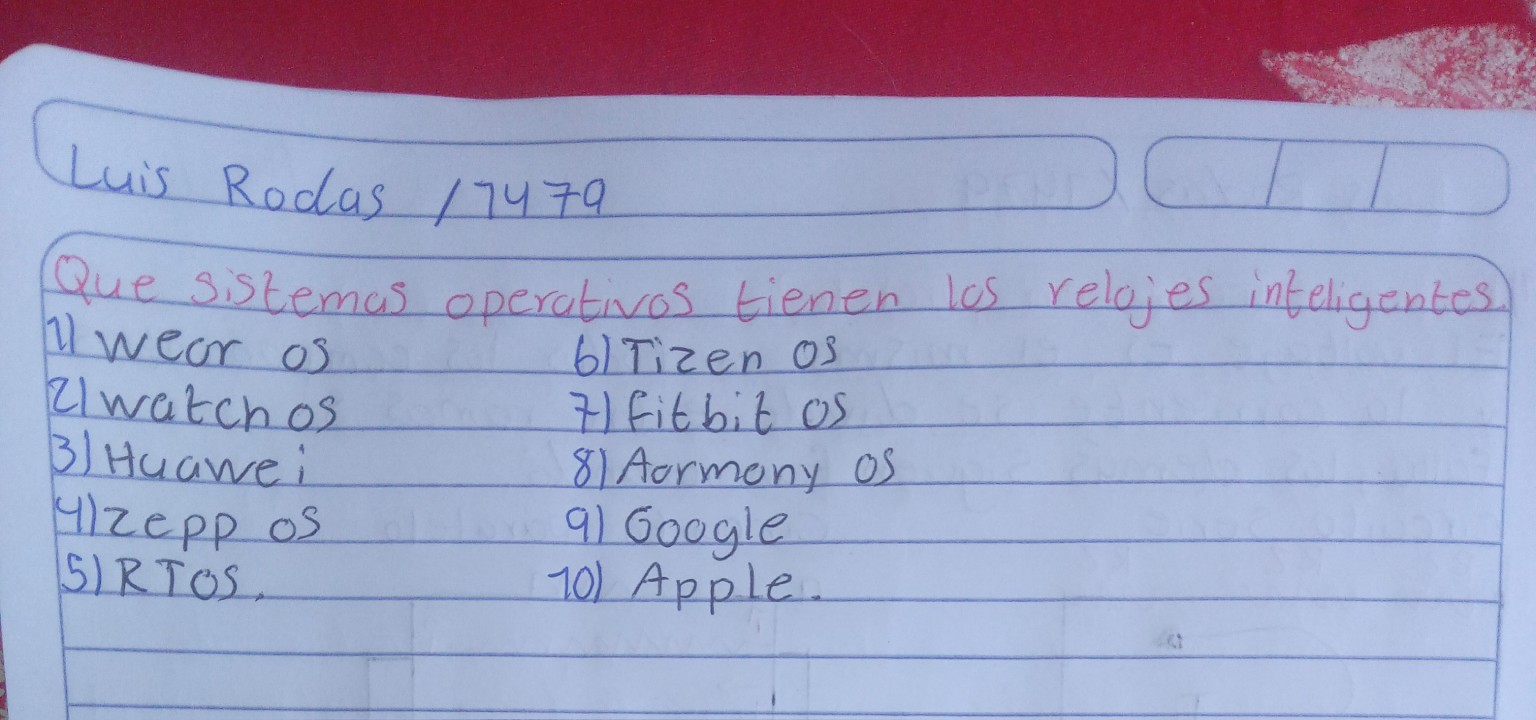 Luis Rodas /7479
Que sistemas operativos tienen los relojes inteligentes.
1) wear os
2) watch os
3) Huawei
4) zepp os
5) RTOS.
6) Tizen os
7) fitbit os
8) Aormony os
9) Google
10) Apple.